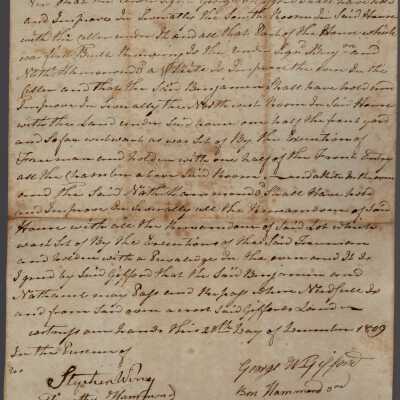 and Improve in Severalty the South Room in Said House
with the celler under It and all that Part of the House which
was first Built Reserving to the and Benj and
Nath Hammond a White to Improve the oven in the
Celler and that the Said Benjamin Shall have hold and
Improve in Severally the North east Room in Said House
with the Land under Said Room one half the front yard
and So far westward as was Set of By the Execution of
Freeman and holden with one half of the Front Entry
all the Chamber above Said Room
and the Said Nath Hammond Shall Have hold
and Improve in Severalty all the Remainder of Said
House with all the Remainder of Said Lot which
was Set of By the Executions of the Said Freeman
and holden with a Privaledge in the oven and It Is
Agreed by Said Gifford that the Said Benjamin and
Nathaniel may Pass and Repass where Need full to
and from Said oven across Said Giffords Land
witness our hands this 28th Day of 1809
In the Presence of
Stephen Wing George W Gifford
Hammond Ben Hammond